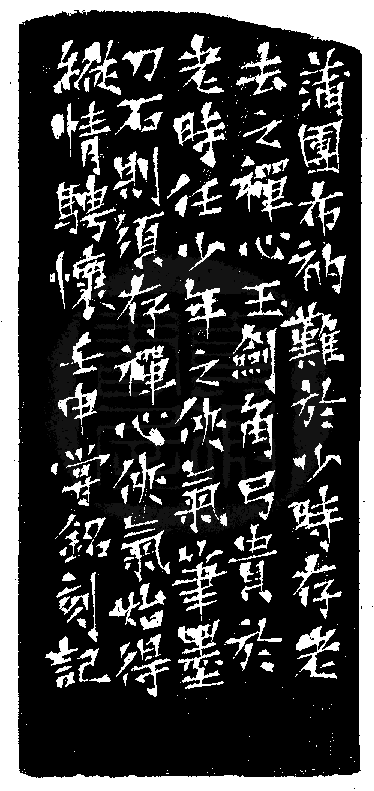 蒲團布衲難於少時存老
去之禪心玉劍角弓貴於
老時任少年之俠氣筆墨
刀石則須存禪心俠氣始得
縱情騁懷壬申銘刻記